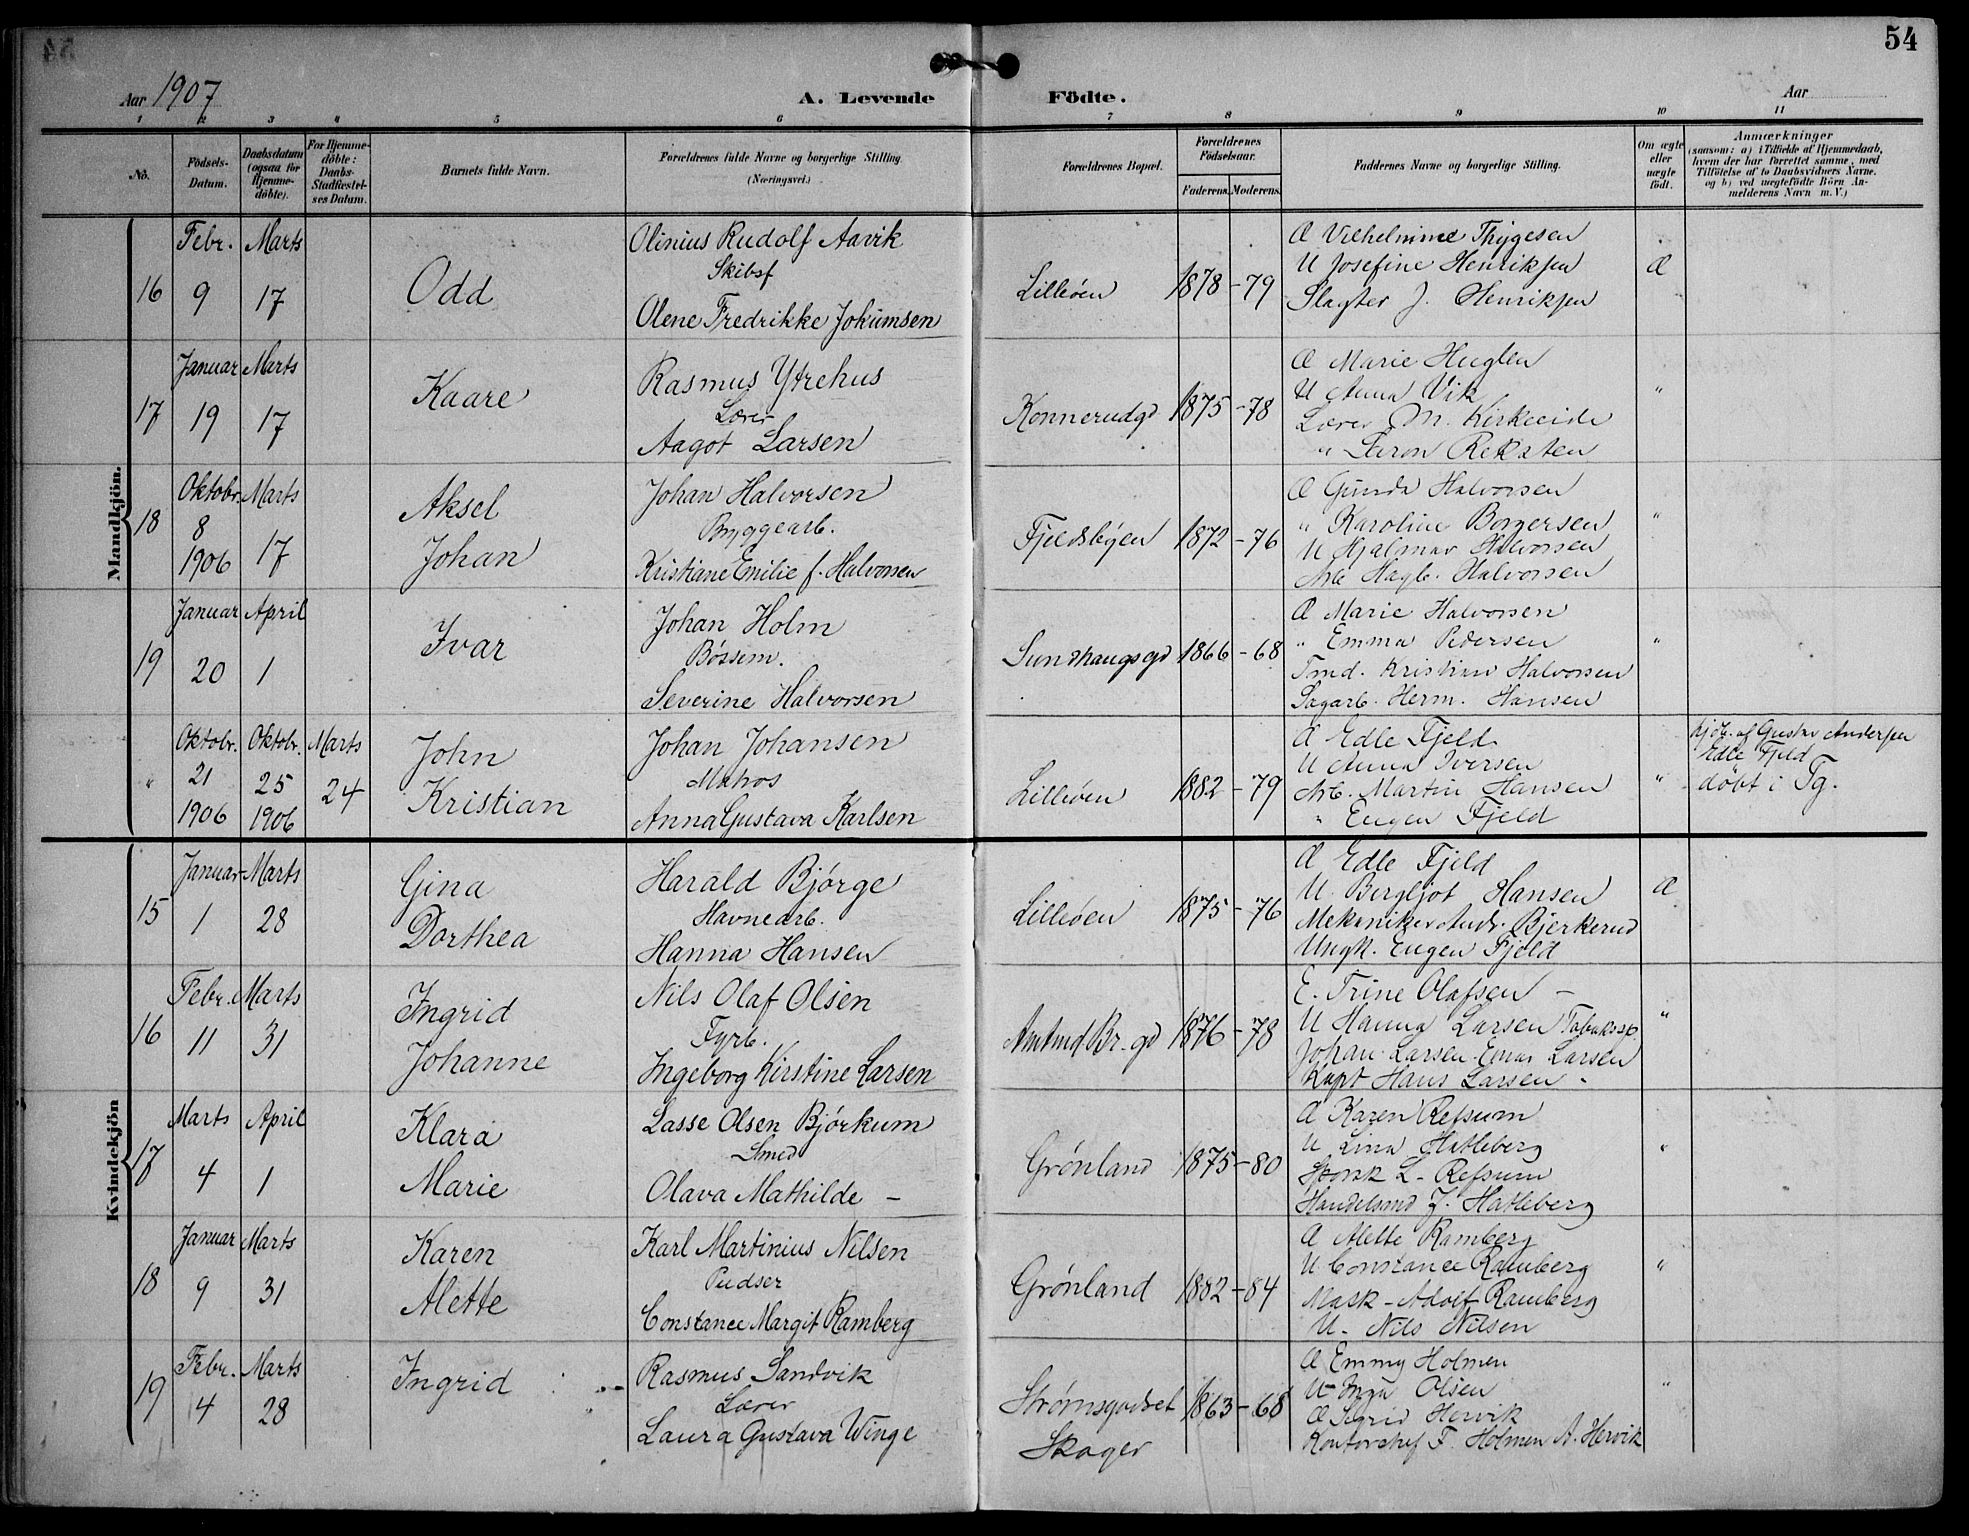 54
Aar 1907
A. Levende Födte.
Aar
1 2 3 4 5 6 7 8 9 10 11
No.
Födsels-Datum.
Daabsdatum (ogsaa for Hjemme-döbte).
For Hjemme-döbte: Daabs-Stadfæstel-ses Datum.
Barnets fulde Navn.
Forældrenes fulde Navne og borgerlige Stilling. (Næringsvei.)
Forældrenes Bopæl.
Forældrenes Födselsaar.
Faderens. Moderens.
Faddernes Navne og borgerlige Stilling.
Om ægte eller uægte födt.
Anmærkninger
(saasom: a) i Tilfælde af Hjemmedaab,
hvem der har forrettet samme, med
Tilföielse af to Daabsvidners Navne.
og b) ved uægtefödte Börn An-
melderens Navn m. V.)
Mandkjön.
16 Febr. 9 Marts 17
Odd
Olinius Rudolf Aavik
Skibsf
Olene Fredrikke Jokumsen
Lilleöen 1878 - 79
Æ Vilhelmine Thygesen
U Josefine Henriksen
Slagter J. Henriksen
Æ
17 Januar 19 Marts 17
Kaare
Rasmus Ytrehus
Lærer
Aagot Larsen
Konnerudgd 1875 - 78
Æ Marie Huglen
U Anna Vik
Lærer M. Kirkeeide
" Reksten
"
18 Oktobr. 8 1906 Marts 17
Aksel
Johan
Johan Halvorsen
Byggearb.
Kristiane Emilie f. Halvorsen
Fjeldsbyen 1872 - 76
Æ Gunda Halvorsen
" Karoline Borgersen
U Hjalmar Halvorsen
Arb Hagb. Halvorsen
"
19 Januar 20 April 1
Ivar
Johan Holm
Bössem.
Severine Halvorsen
Sundhaugsgd 1866 - 68
Æ Marie Halvorsen
" Emma Pedersen
Tmd. Kristian Halvorsen
Sagarb. Herm. Hansen
"
" Oktobr. 21 1906 Oktobr. 25 1906 Marts 24
John
Kristian
Johan Johansen
Matros
Anna Gustava Karlsen
Lilleöen 1882 - 79
Æ Edle Fjeld
U Anna Iversen
Arb. Martin Hansen
" Eugen Fjeld
"
Hjdr. af Gustav Andersen
Edle Fjeld
döbt i Tg.
Kvindekjön
15 Januar 1 Marts 28
Gina
Dorthea
Harald Bjørge
Havnearb.
Hanna Hansen
Lilleöen 1875 - 76
Æ Edle Fjeld
U. Bergljot Hansen
Mekaniker Andr. Bjerkerud
Ungk. Eugen Fjeld
Æ
16 Febr. 11 Marts 31
Ingrid
Johanne
Nils Olaf Olsen
Fyrb.
Ingeborg Kirstine Larsen
Amtmd Br. gd 1876 - 78
E. Trine Olafsen -
U Hanna Larsen Tobakssp.
Johan Larsen Einar Larsen
Kapt Hans Larsen
"
17 Marts 4 April 1
Klara
Marie
Lasse Olsen Bjørkum
Smed
Olava Mathilde -
Grønland 1875 - 80
Æ Karen Refsum
U Lina Hatleberg
L. Refsum
Handelsmd J. Hatleberg
"
18 Januar 9 Marts 31
Karen
Alette
Karl Martinius Nilsen
Pudser
Constance Margit Ramberg
Grønland 1882 - 84
Æ Alette Ramberg
U Constance Ramberg
Mask - Adolf Ramberg
U - Nils Nilsen
"
19 Febr. 4 Marts 28
Ingrid
Rasmus Sandvik
Lærer
Laura Gustava Winge
Strømsgodset
Skoger
1863 - 68
Æ Emmy Holmen
U Inga Olsen
Æ Sigrid Hervik
Kontorchef F. Holmen A. Hervik
"